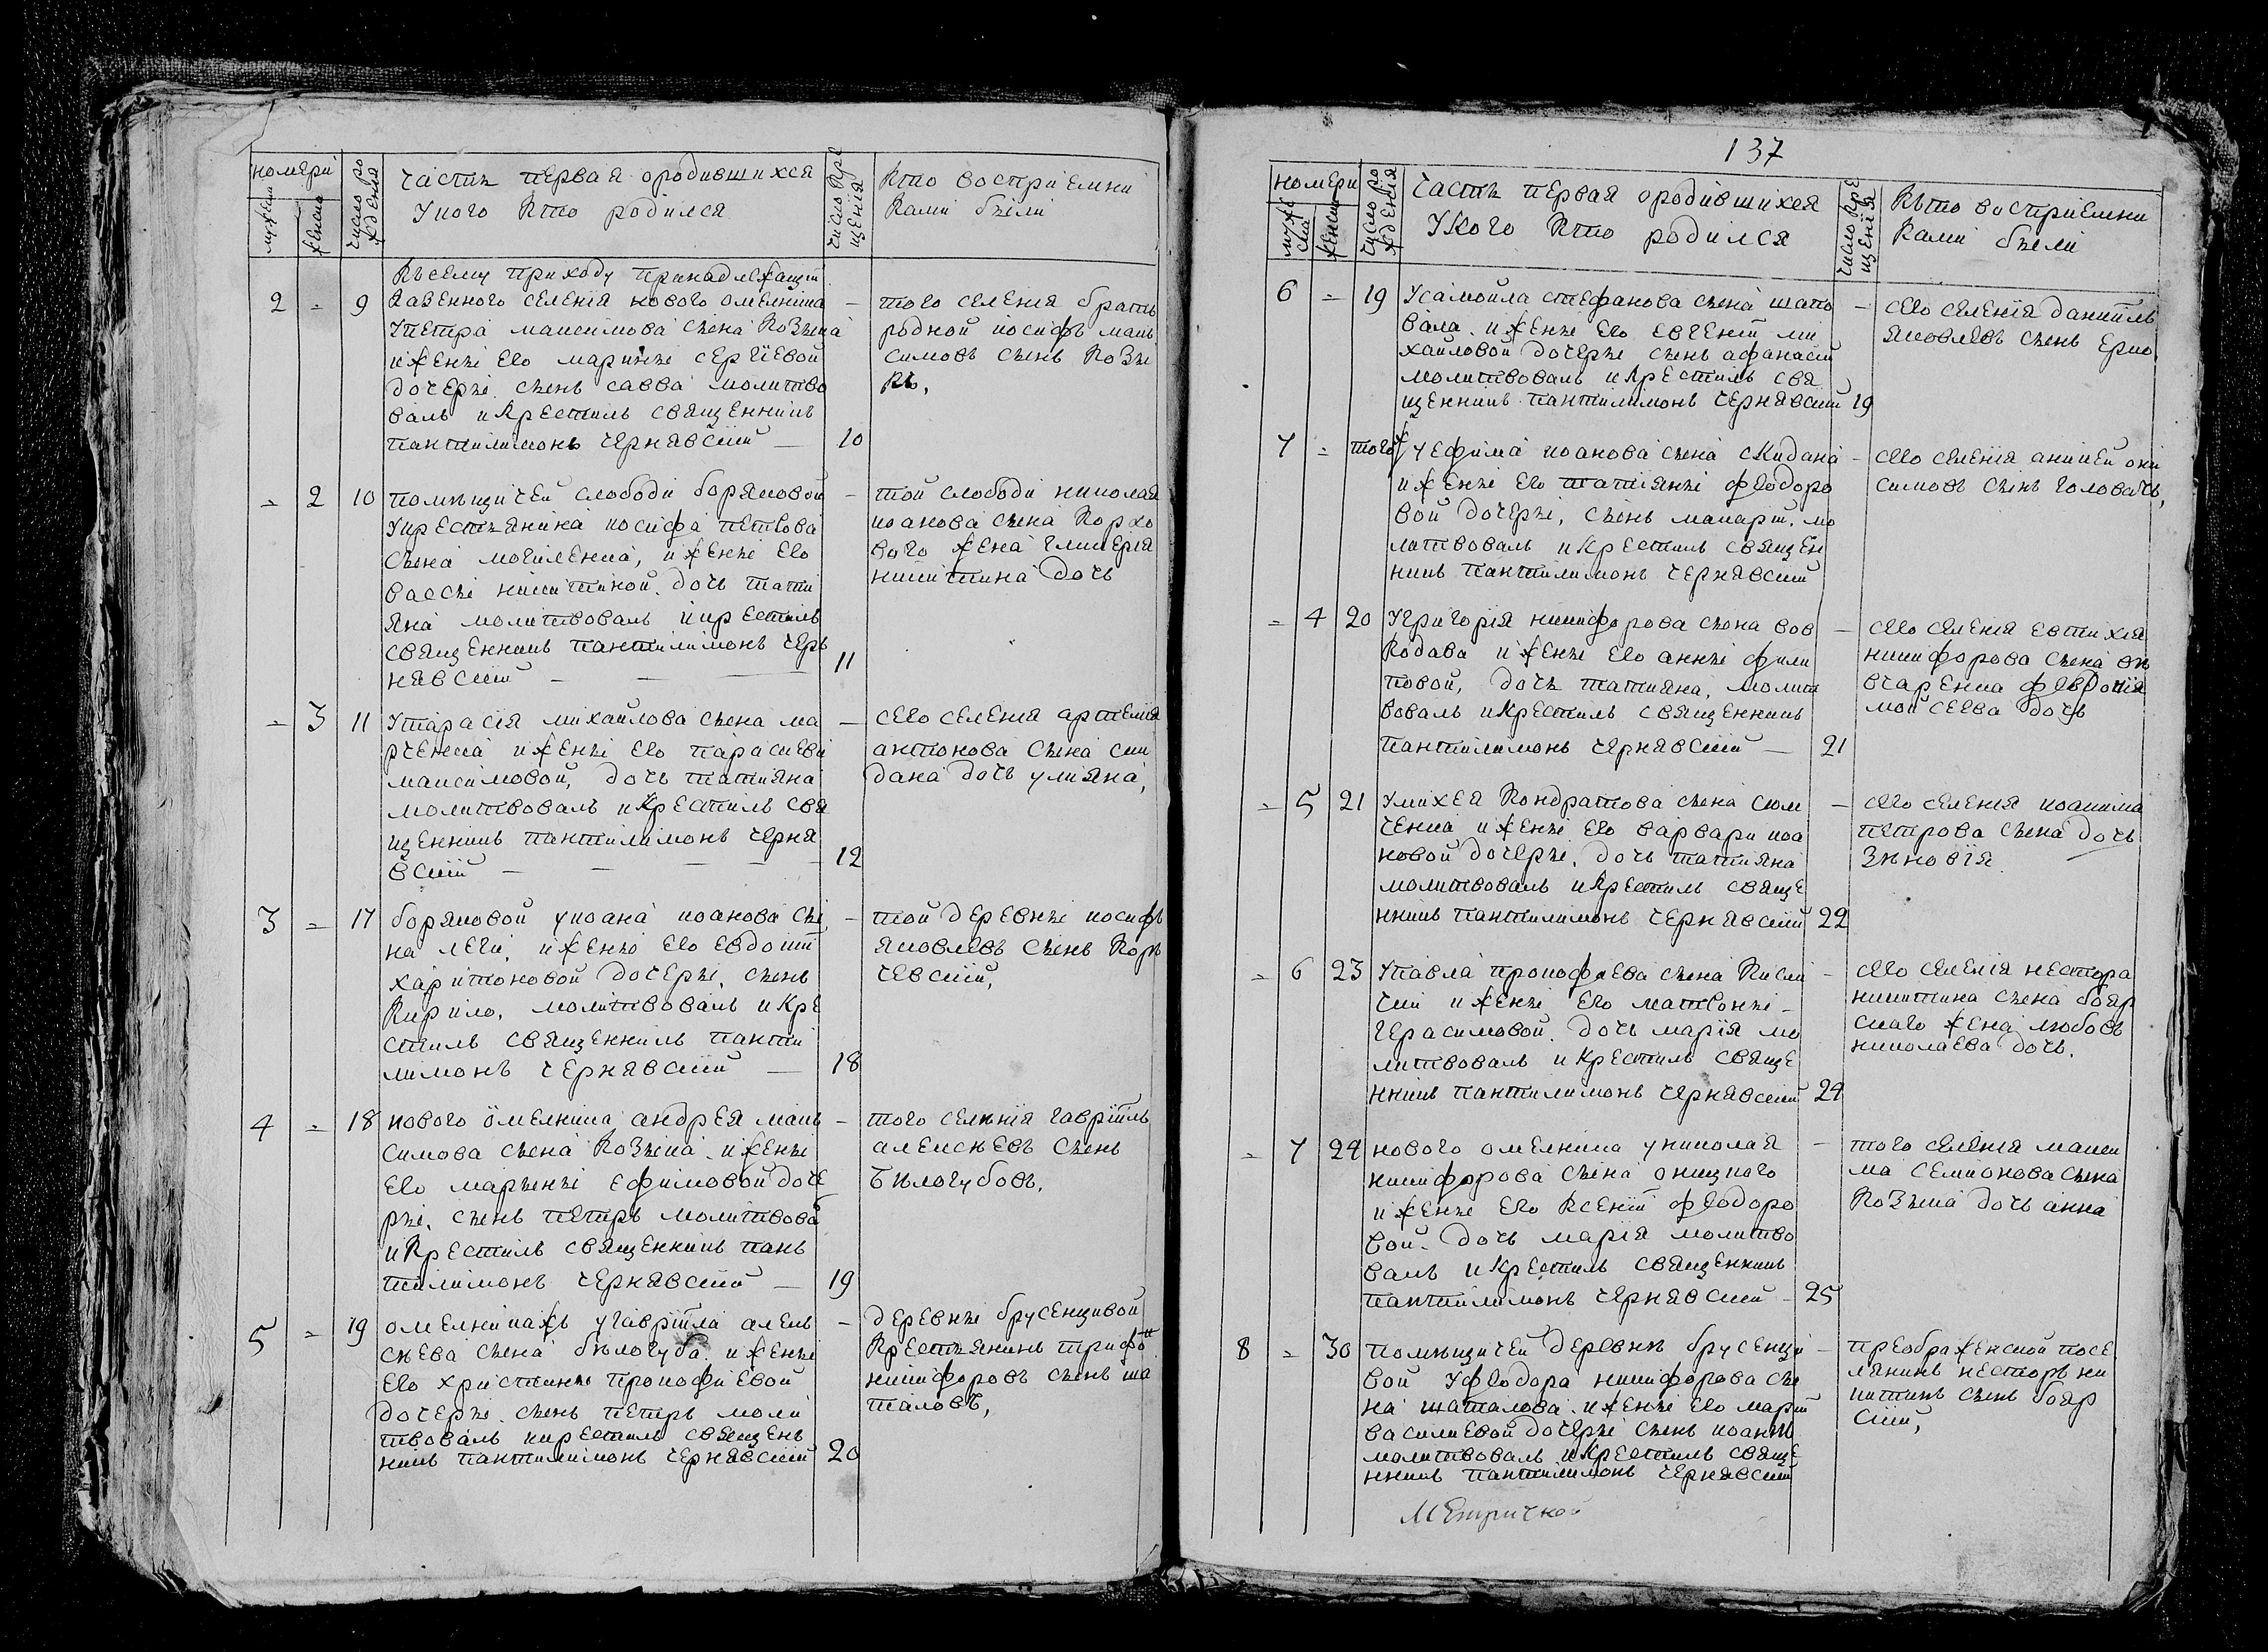 номери
мужеска
женска
число рождения
часть первая ородившихся
Укого кто родился
число крещения
Кто воспріемни
ками были
Късему приходу принадлежащій
2 = 9 казенного селенія нового омелника —
Упетра максимова сына козыка
ижене его марине сергіевой
дочере сынъ савва молитво
валъ икрестилъ священникъ
пантилимонъ чернявскій — 10
того селенія братъ
родной іосифъ макъ
симовъ сынъ козы
къ,
= 2 10 помещичей слободи боряковой —
Укрестьянина иосифа петрова
сына могиленка, ижене его
вассе никитиной. дочъ тати
яна молитвовалъ икрестилъ
священникъ пантилимонъ черъ
нявскій — 11
той слободи николая
иоанова сына коржо
вого жена гликерія
никитина дочъ
= 3 11 Утарасія михайлова сына ма —
рченка ижене его параскеви
максимовой, дочъ татияна
молитвовалъ икрестилъ свя
щенникъ пантилимонъ черня
вскій — 12
сего селенія артемія
антонова сына ски
дана дочъ улияна,
3 = 17 боряковой уиоана иоанова сы —
на леги, ижене его евдокіи
харитоновой дочере, сынъ
Кирило, молитвовалъ икре
стилъ священникъ панти
лимонъ чернявскій — 18
той деревне иосифъ
яковлевъ сынъ коръ
чевскій,
4 = 18 нового омелника андрея макъ —
симова сына козыка. ижене
его марыне ефимовой доче
ре, сынъ петръ молитвова
икрестилъ священникъ панъ
тилимонъ чернявскій — 19
того селенія гавріилъ
алексеевъ сынъ
Белогубовъ.
5 = 19 омелникажъ угавріила алекъ —
сеева сына белогуба. ижене
его христине прокофиевой
дочере. сынъ петръ моли
твовалъ икрестилъ священъ
никъ пантилимонъ чернявскій 20
деревне брусенцивой
крестьянинъ трифо
никифоровъ сынъ ша
таловъ,
137
номери
мужеска
женска
число рождения
часть первая ородившихся
Укого кто родился
число крещенія
Къто воспріемни
ками были
6 = 19 Усамойла стефанова сына шапо —
вала. ижене его евгеніи ми
хайловой дочере сынъ афанасій
молитвовалъ икрестилъ свя
щенникъ пантилимонъ чернявскій 19
сего селенія даниилъ
яковлевъ сынъ ерко.
7 = тогож уефима иоанова сына скидана —
ижене его татіяне феодоро
вой дочере, сынъ макарій. мо
литвовалъ икрестилъ священ
никъ пантилимонъ чернявскій
сего селенія аникей они
симовъ сынъ головачъ,
= 4 20 Угригорія никифорова сына вов —
кодава ижене его анне фили
повой, дочъ татияна, молит
вовалъ икрестилъ священникъ
пантилимонъ чернявскій — 21
сего селенія евтихія
никифорова сына
вчаренка феврония
мойсеева дочъ
= 5 21 Умихея кондратова сына сюм —
ченка ижене его варвари иоа
новой дочере, дочъ татияна
молитвовалъ икрестилъ свяще
нникъ пантилимонъ чернявскій 22
сего селенія иоакима
петрова сына дочъ
Зеновія
= 6 23 Упавла прокофиева сына кисли —
чки ижене его матроне —
герасимовой. дочъ марія мо
литвовалъ икрестилъ свяще
нникъ пантилимонъ чернявскій 24
сего селенія нестора
никитина сына бояр
скаго жена любовъ
николаева дочъ.
= 7 24 нового омелника униколая —
никифорова сына онацкого
ижене его ксеніи феодоро
вой. дочъ марія молитво
валъ икрестилъ священникъ
пантилимонъ чернявскій — 25
того селенія макси
ма семионова сына
козыка дочъ анна
8 = 30 помещичей деревне брусенци —
вой уфеодора никифорова сы
на шаталова. ижене его маріи
василиевой дочере сынъ иоанъ
молитвовалъ икрестилъ свяще
нникъ пантилимонъ чернявскій
преображенской посе
лянинъ несторъ ни
китинъ сынъ бояр
скій,
Метричной